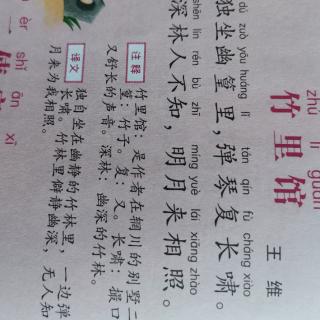 zhú lǐ guǎn
竹里馆
王维
dú zuò yōu huáng lǐ tán qín fù cháng xiào
独坐幽篁里，弹琴复长啸。
shēn lín rén bù zhī míng yuè lái xiāng zhào
深林人不知，明月来相照。
注释
竹里馆：是作者在辋川的别墅二
篁：竹子。复：又。长啸：撮口
又舒长的声音。深林：幽深的竹林。
译文
独自坐在幽静的竹林里，一边弹
长啸。竹林里僻静幽深，无人知
月来为我相照。
èr shǐ ān xī